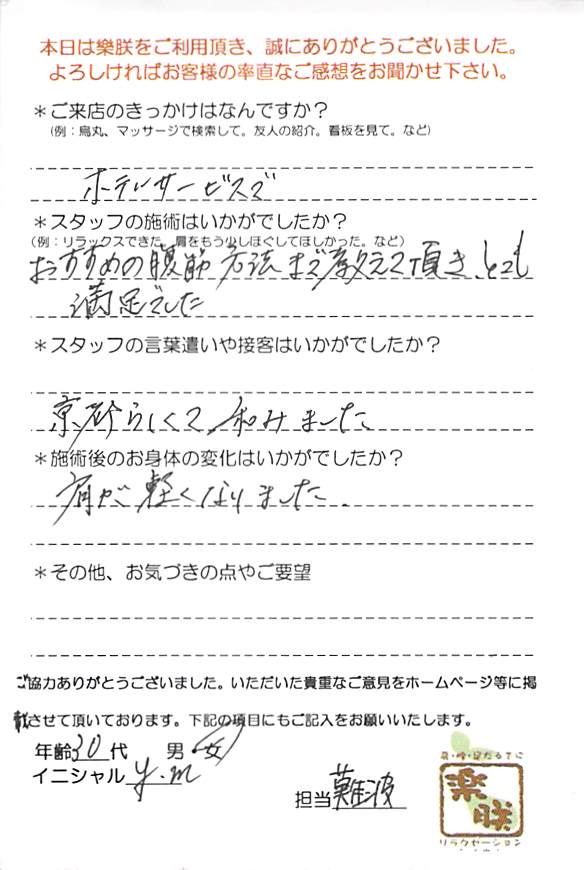 本日は樂朕をご利用頂き、誠にありがとうございました。
よろしければお客様の率直なご感想をお聞かせ下さい。
＊ご来店のきっかけはなんですか？
（例：烏丸、マッサージで検索して。友人の紹介。看板を見て。など）
ホテルサービスで
＊スタッフの施術はいかがでしたか？
（例：リラックスできた。肩をもう少しほぐしてほしかった。など）
おすすめの腹筋方法まで教えて頂き、とても
満足でした
＊スタッフの言葉遣いや接客はいかがでしたか？
京都らしくて、和みました
＊施術後のお身体の変化はいかがでしたか？
肩が軽くなりました.
＊その他、お気づきの点やご要望
ご協力ありがとうございました。いただいた貴重なご意見をホームページ等に掲
載させて頂いております。下記の項目にもご記入をお願いいたします。
年齢30代 男 女
イニシャル y.m
担当 難波
楽朕
リラクゼーション